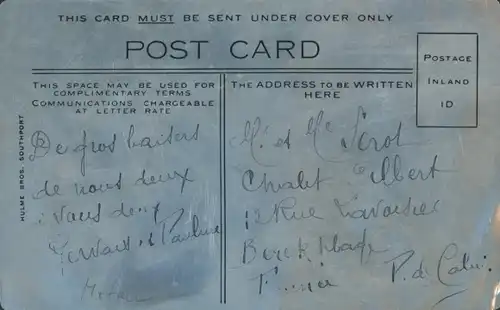 THIS CARD MUST BE SENT UNDER COVER ONLY
POST CARD
POSTAGE
INLAND
1D
THIS SPACE MAY BE USED FOR
COMPLIMENTARY TERMS
COMMUNICATIONS CHARGEABLE
AT LETTER RATE
THE ADDRESS TO BE WRITTEN
HERE
HULME BROS. SOUTHPORT
De gros baisers
de nous deux
à vous deux
et Pauline
Mr et Me
Chalet Albert
12 Rue Lavoisier
Berck Plage
France P. de Calais